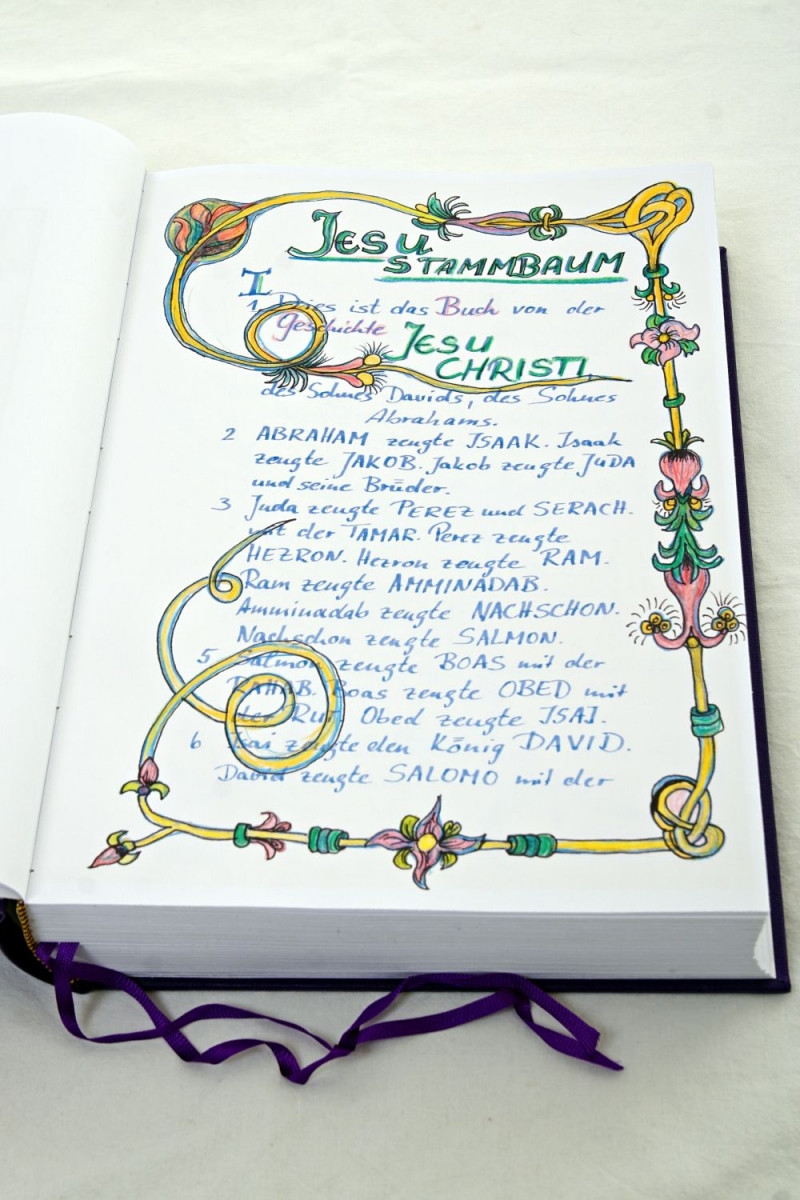 JESU
STAMMBAUM
I
1. Dies ist das Buch von der
Geschichte
JESU
CHRISTI,
des Sohnes Davids, des Sohnes
Abrahams.
2 ABRAHAM zeugte ISAAK. Isaak
zeugte JAKOB. Jakob zeugte JUDA
und seine Brüder.
3 Juda zeugte PEREZ und SERACH.
mit der TAMAR. Perez zeugte
HEZRON. Hezron zeugte RAM.
Ram zeugte AMMINADAB.
Amminadab zeugte NACHSCHON.
Nachschon zeugte SALMON.
5 Salmon zeugte BOAS mit der
RAHAB. Boas zeugte OBED mit
der Rut. Obed zeugte ISAI.
6 Isai zeugte den König DAVID.
David zeugte SALOMO mit der